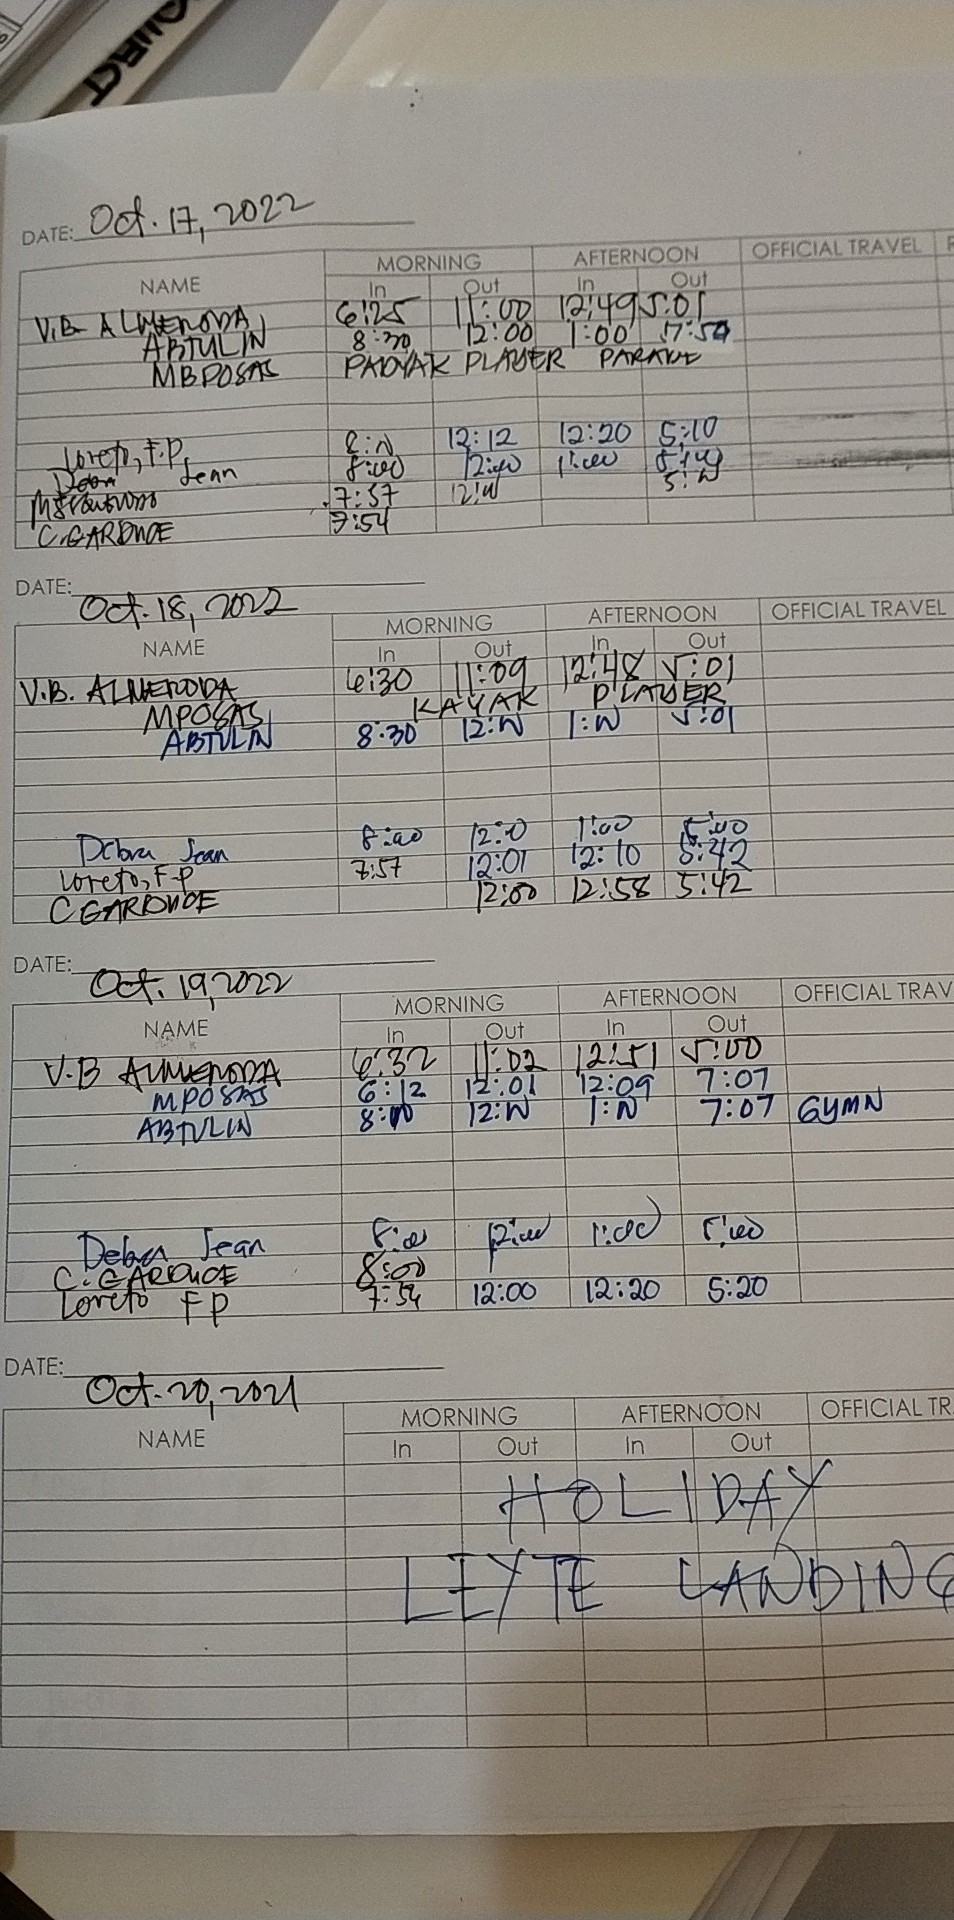 DATE: Oct. 17, 2022
MORNING AFTERNOON OFFICIAL TRAVEL
NAME In Out In Out
V.B. ALMENODA 6:25 11:00 12:49 5:01
ABTULIN 8:30 12:00 1:00
MBPOSAS PADYAK PLAYER PARADE
Loreto, F.P. 12:12 12:20 5:10
Jean 8:00 12:00 1:00
7:57
C.GARDUCE 7:54
DATE: Oct. 18, 2022
MORNING AFTERNOON OFFICIAL TRAVEL
NAME In Out In Out
V.B. ALMENODA 6:30 11:09 12:48 5:01
MPOSAS KAYAK PLAYER
ABTULIN 8:30 12:00 1:00 5:01
Debra Jean 8:00 12:00 1:00 5:00
Loreto, F.P 7:57 12:01 12:10 5:42
C GARDUCE 12:00 12:58 5:42
DATE: Oct. 19, 2022
MORNING AFTERNOON OFFICIAL TRAV
NAME In Out In Out
V.B ALMENODA 6:32 11:02 12:51 5:00
MPOSAS 6:12 12:01 12:09 7:07
ABTULIN 8:00 12:00 1:00 7:07 GYMN
Debra Jean 8:00 12:00 1:00 5:00
C. GARDUCE 8:00
Loreto FP 7:54 12:00 12:20 5:20
DATE: Oct. 20, 2021
MORNING AFTERNOON OFFICIAL TR
NAME In Out In Out
HOLIDAY
LEYTE LANDING